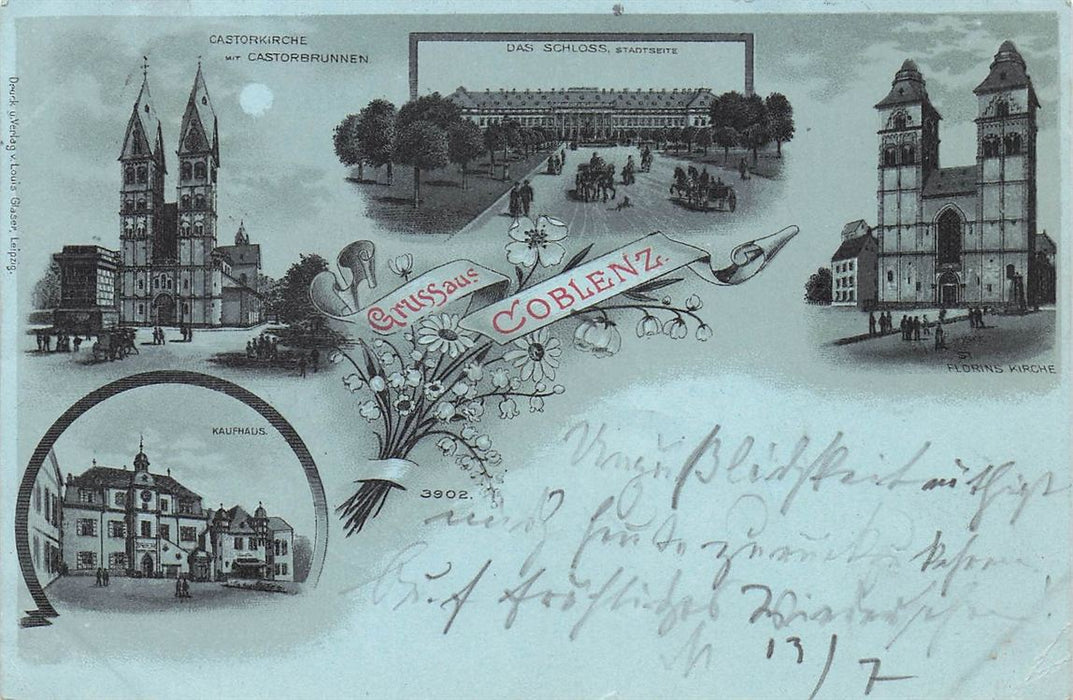 CASTORKIRCHE
MIT CASTORBRUNNEN.
DAS SCHLOSS, STADTSEITE
Druck u. Verlag v. Louis Glaser, Leipzig.
Gruss aus
COBLENZ.
FLORINS KIRCHE
KAUFHAUS.
3902.
nöthigt
mich heute zurückzukehren.
Auf fröhliches Wiedersehen.
M 13/7